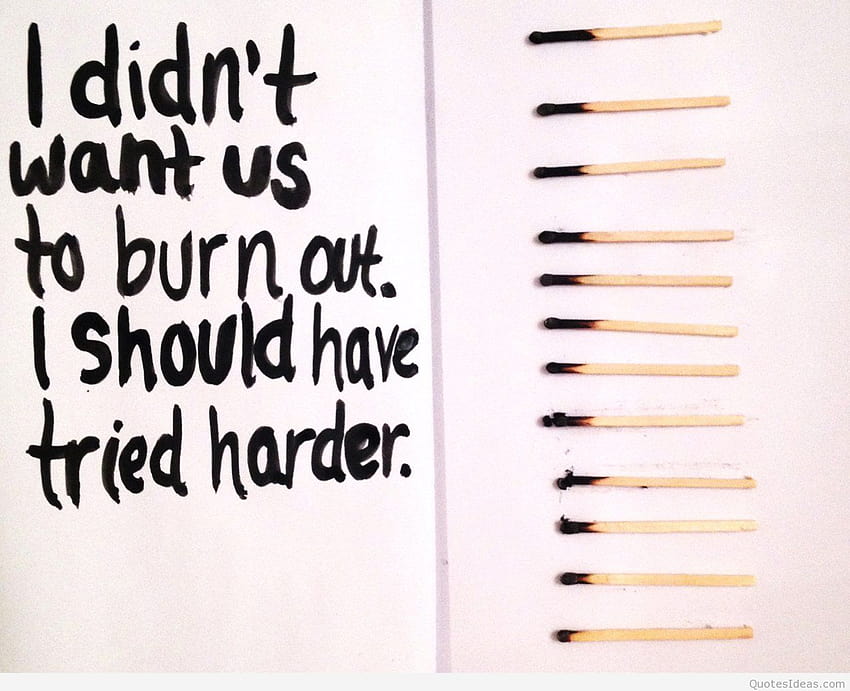 I didn't
want us
to burn out.
I should have
tried harder.
QuotesIdeas.com